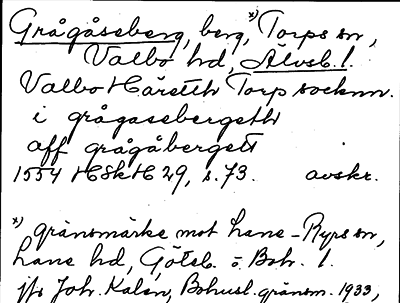 Grågåseberg, berg,*) Torps sn,
Valbo hd, Älvsb. l.
Valbo Häreth Torp socknn.
i grågasebergeth
aff grågåbergett
1554 HSkH 29, s. 73. avskr.
*) gränsmärke mot Lane-Ryrs sn,
Lane hd, Göteb. o. Boh. l.
jfr Joh. Kalén, Bohusl. gränsm. 1933,